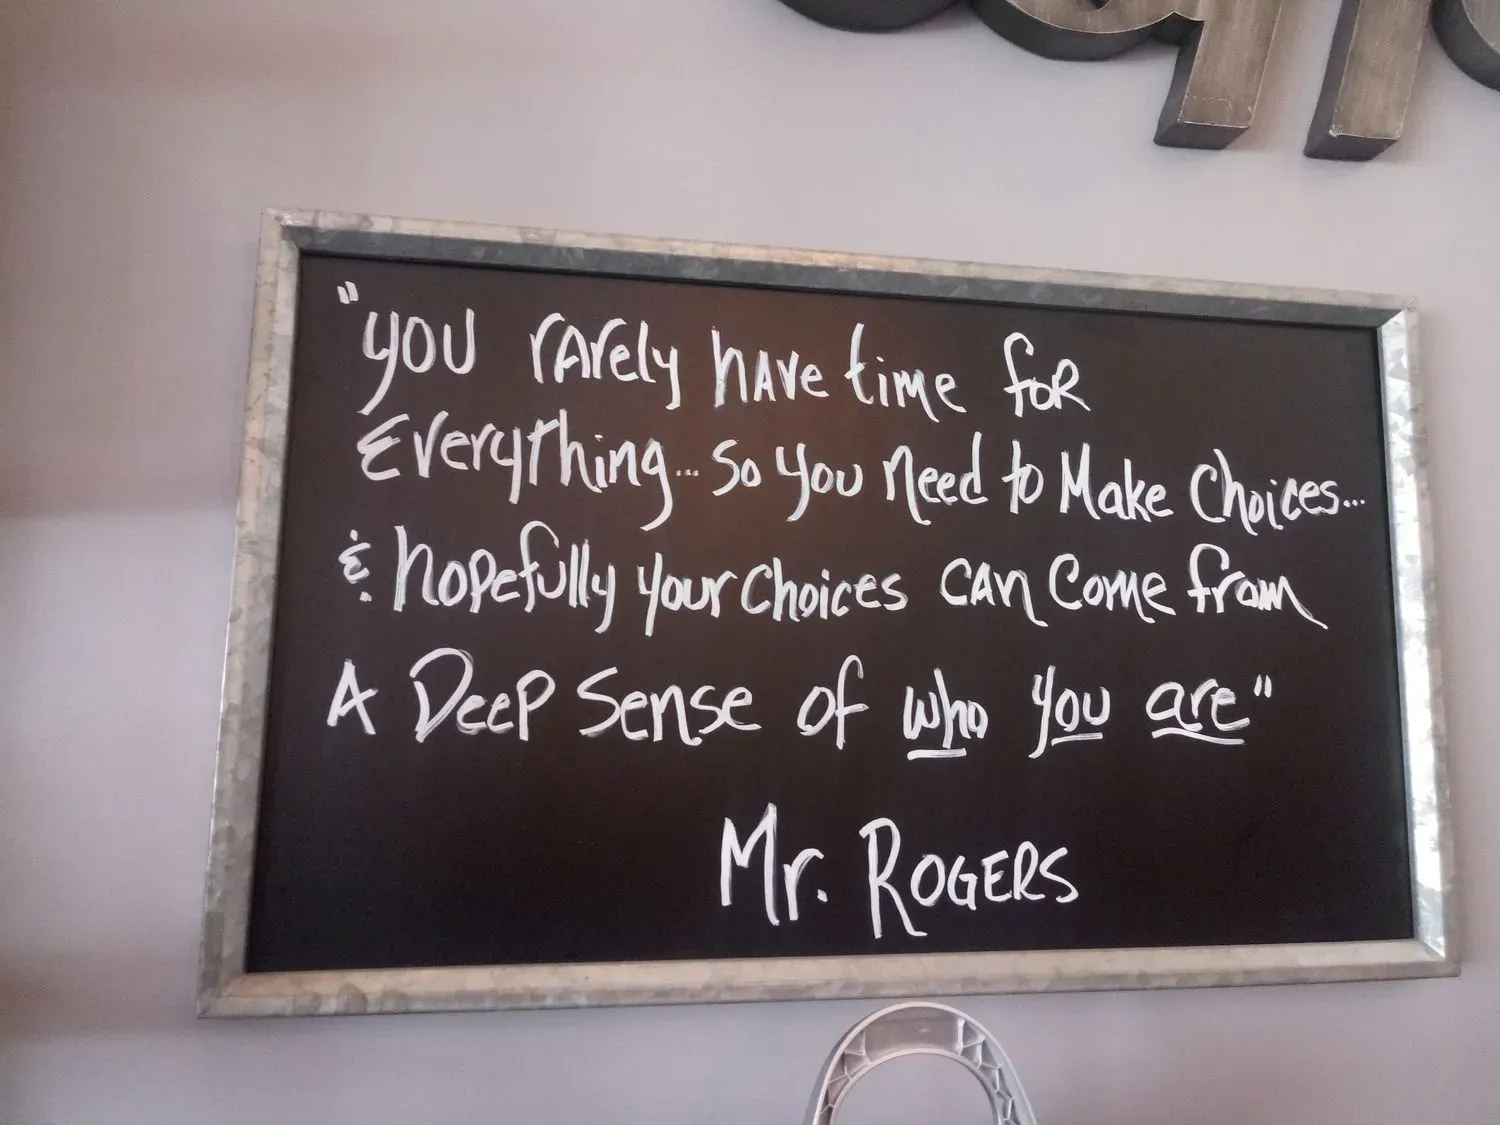 "You rarely have time for
Everything... So you need to Make Choices...
& hopefully your choices can come from
A Deep Sense of who you are"
Mr. Rogers